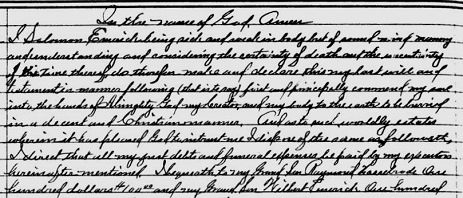 In the name of God, Amen
I Solomon Emerich being sick and weak in body but of sound mind memory
and understanding and considering the certainty of death and the uncertainty
of the time thereof do therefore make and declare this my last will and
testament in manner following (that is to say) first and principally commend my soul
into the hands of Almighty God my creator and my body to the earth to be buried
in a decent and Christian manner. And as to such worldly estate
wherein it has pleased God to intrust me I dispose of the same as followeth,
I direct that all my just debts and funeral expenses be paid by my executors
hereinafter mentioned. I bequeath to my Grand Son Raymond One
hundred dollars $100.00 and my Grand Son Wilbert Emerich One hundred